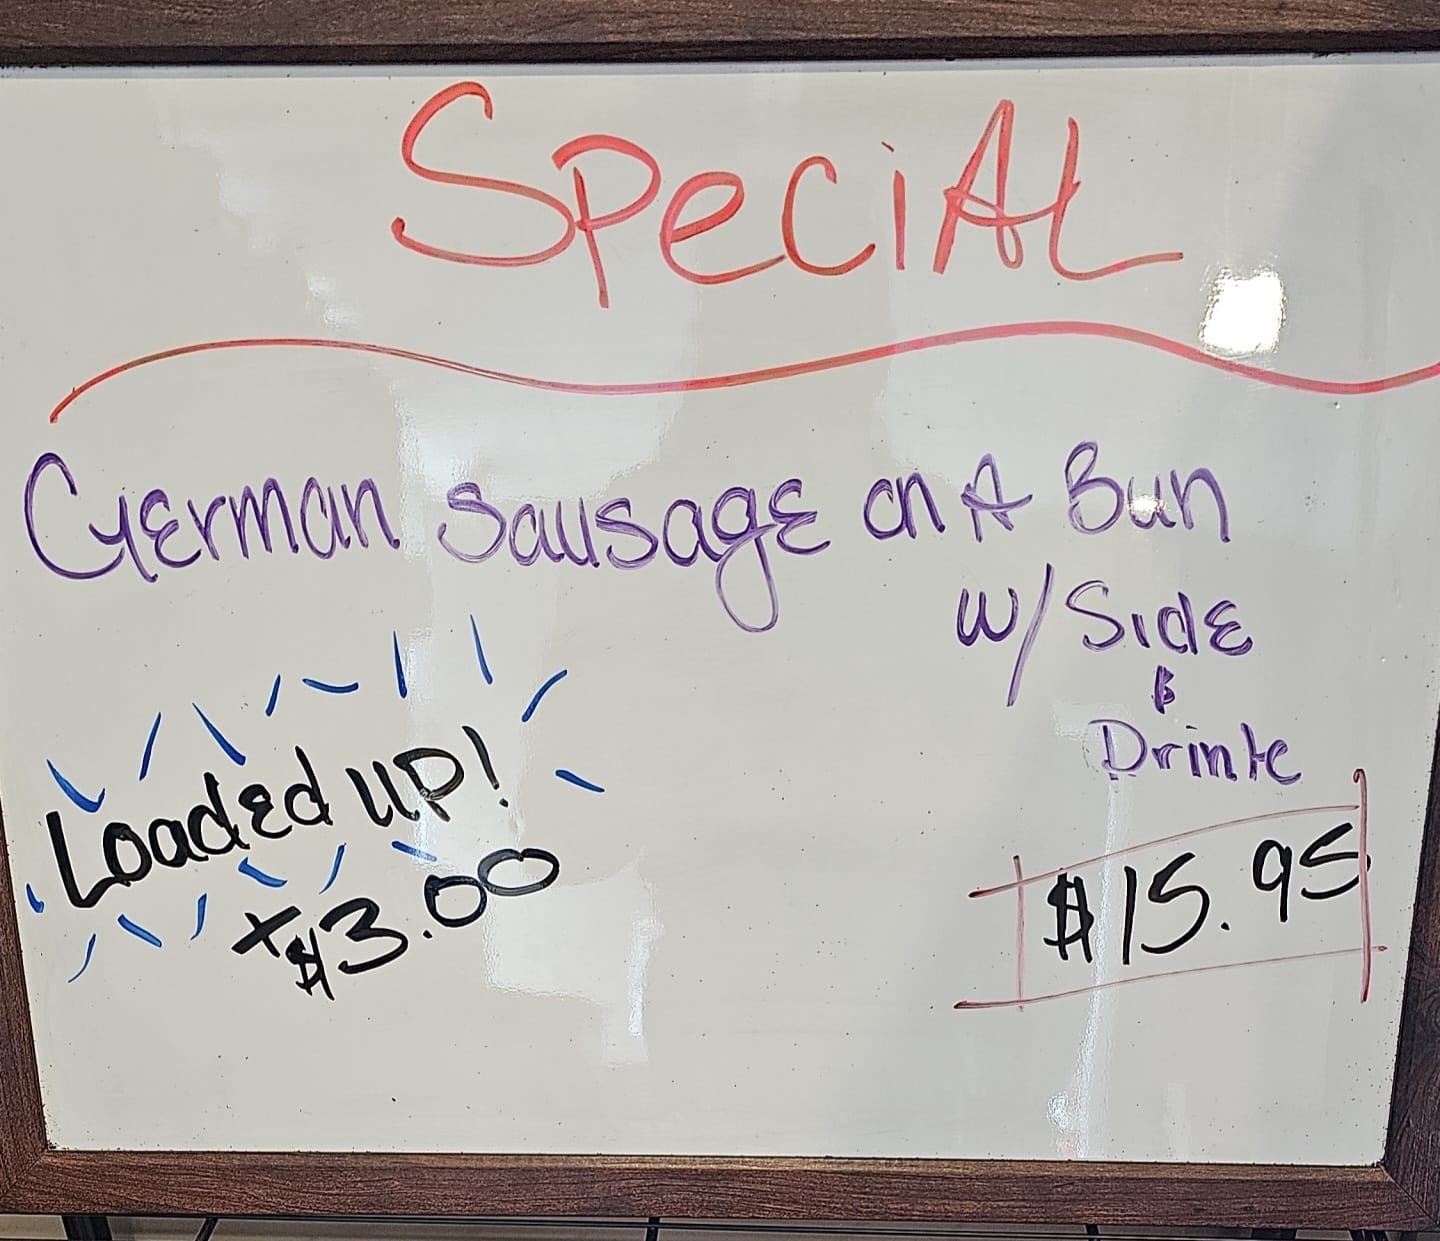 SPeciAL
GErman SausagE on A Bun
W/ SidE
&
Drink
LoadEd UP!
+$3.00
$15.95